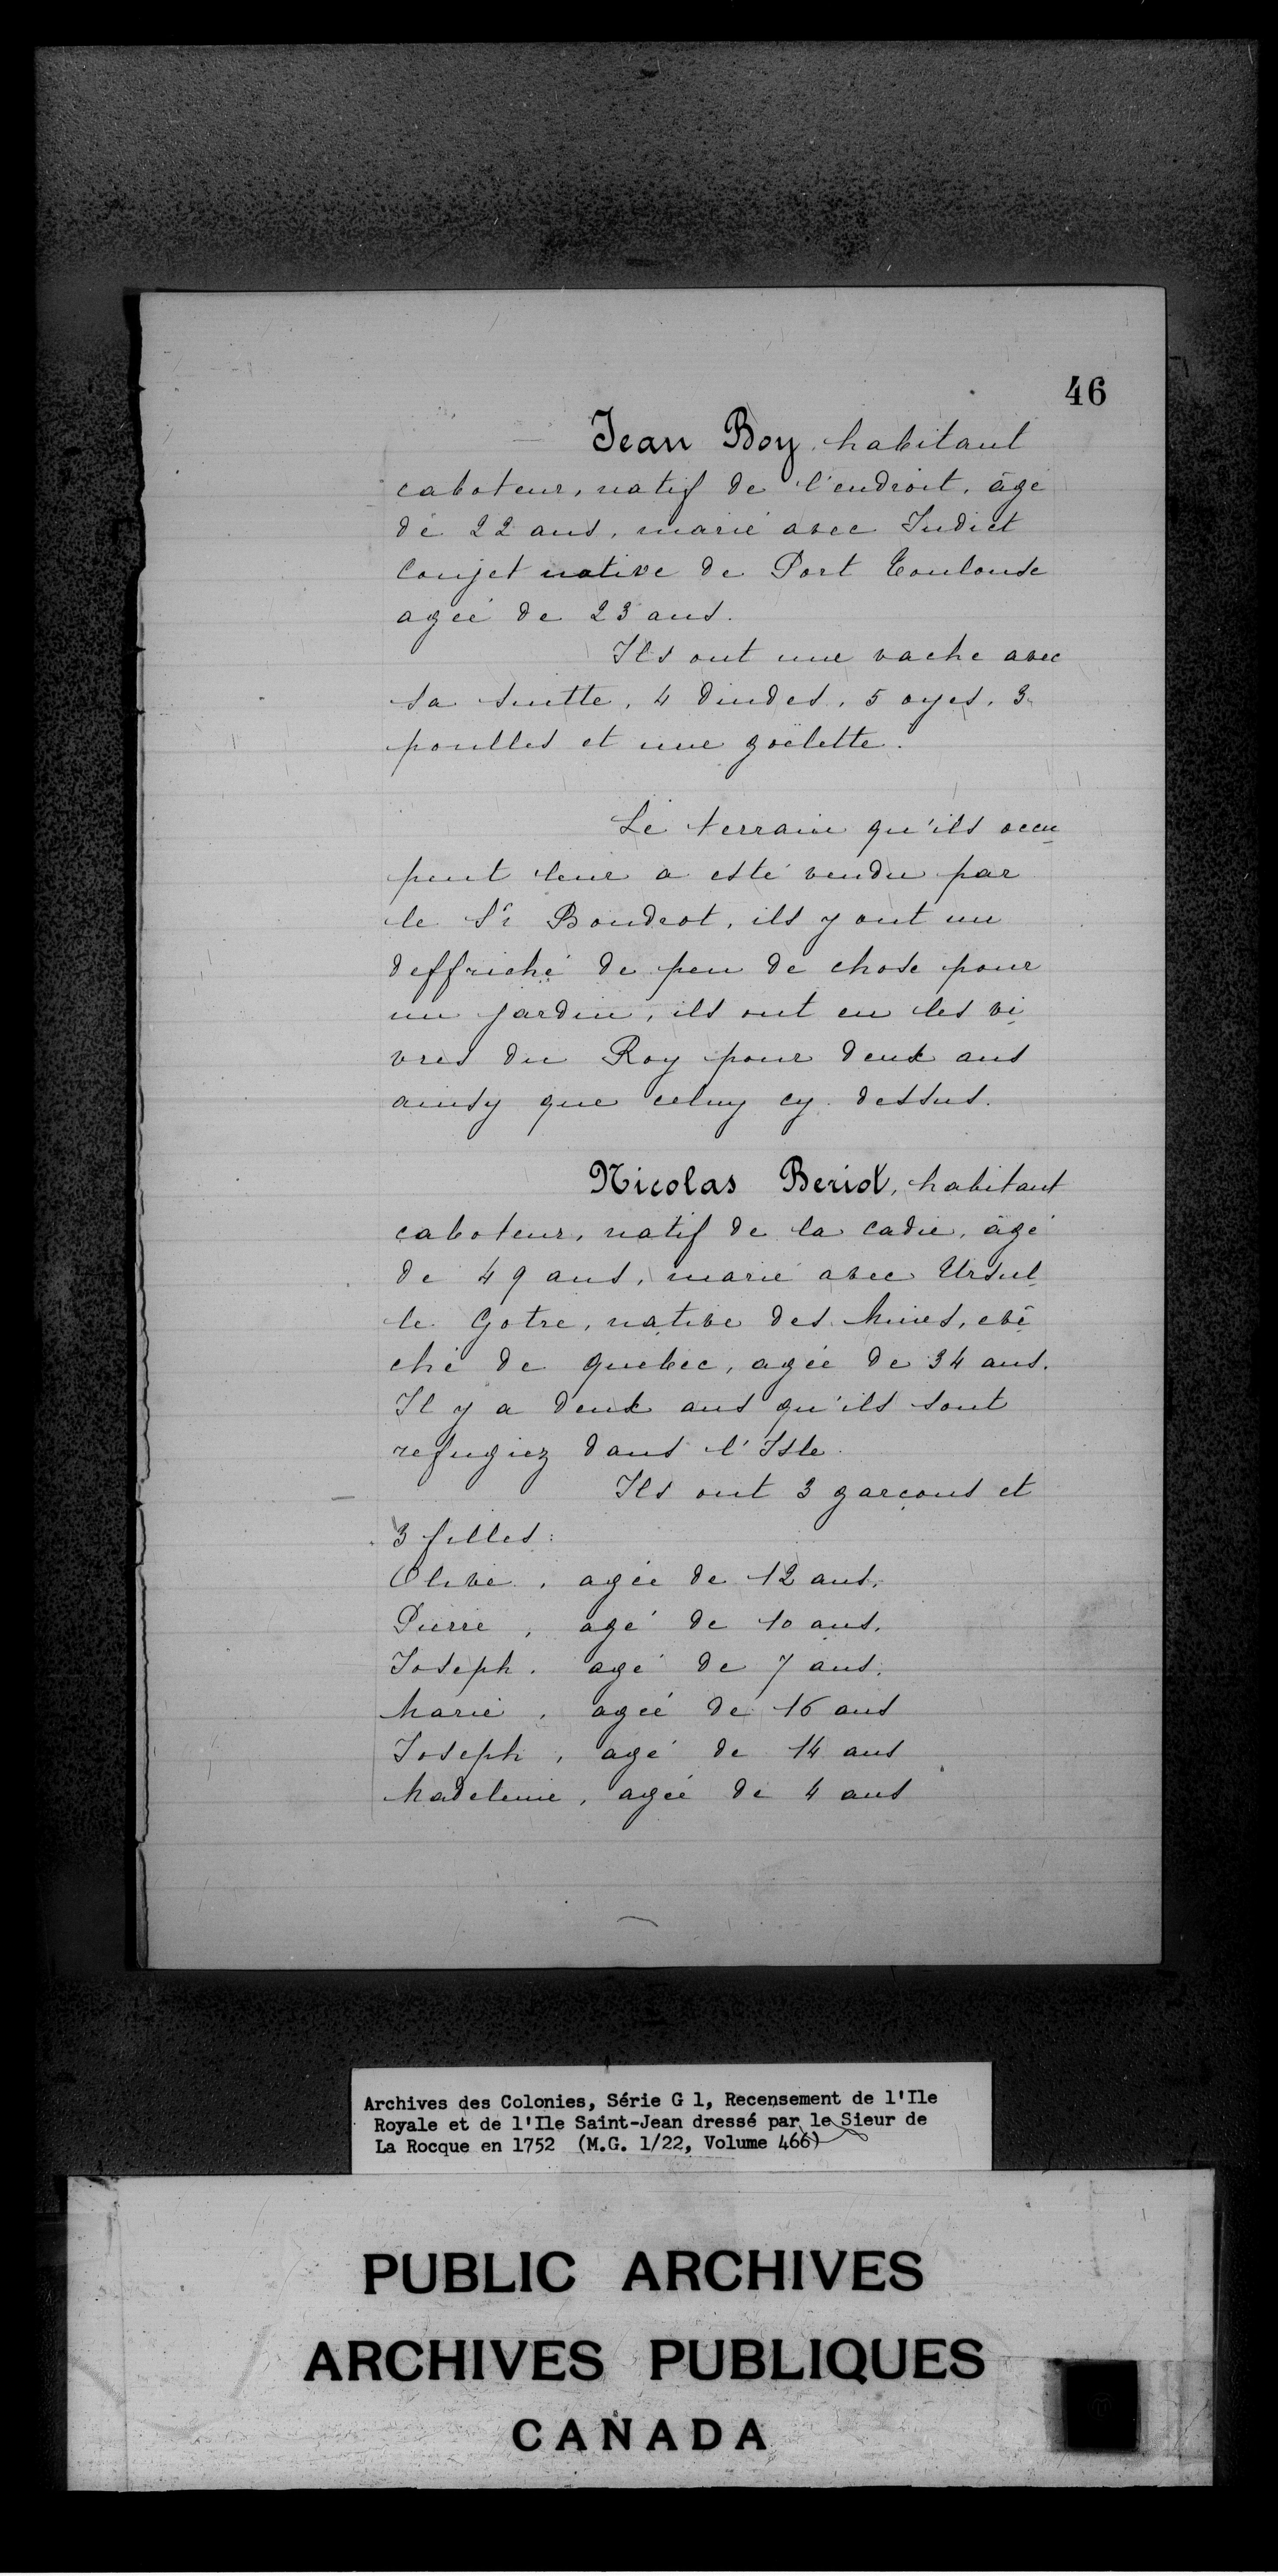 46
Jean Boy, habitant
caboteur, natif de l'endroit, âgé
de 22 ans, marié avec Judict
Coujet native de Port Toulouse
agée de 23 ans.
Ils ont une vache avec
sa suitte, 4 dindes, 5 oyes, 3
poulles et une goëlette.
Le terrain qu'ils occu
pent leur a esté vendu par
le Sr Boudrot, ils y ont un
deffriché de peu de chose pour
un jardin, ils ont eu les vi
vres du Roy pour deux ans
ainsy que celuy cy dessus.
Nicolas Beriot, habitant
caboteur, natif de la cadie, âgé
de 49 ans, marié avec Ursul
le Gotre, native des Mines, evê
ché de quebec, agée de 34 ans.
Il y a deux ans qu'ils sont
refugiez dans l'Isle.
Ils ont 3 garçons et
3 filles:
Olive, agée de 12 ans,
Pierre, agé de 10 ans,
Joseph, agé de 7 ans,
Marie, agée de 16 ans
Joseph, agé de 14 ans
Madeleine, agée de 4 ans
Archives des Colonies, Série G 1, Recensement de l'Ile
Royale et de l'Ile Saint-Jean dressé par le Sieur de
La Rocque en 1752 (M.G. 1/22, Volume 466)
PUBLIC ARCHIVES
ARCHIVES PUBLIQUES
CANADA